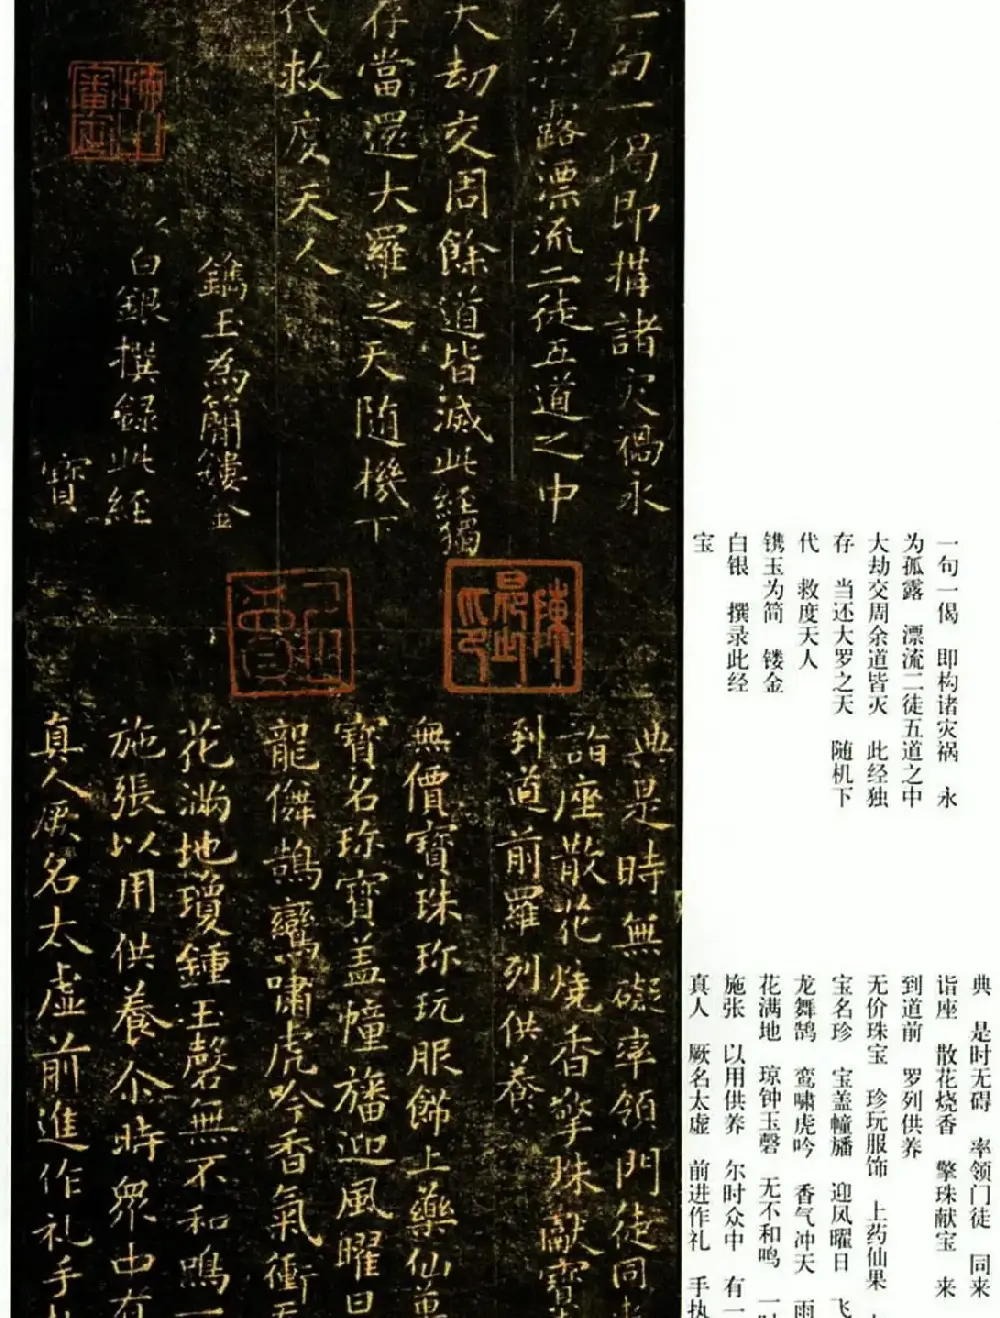 一句一偈即構諸灾禍永
露漂流二徒五道之中
大劫交周餘道皆滅此経獨
存當還大羅之天随機下
代救度天人
鐫玉為簡鏤金
白銀撰録此経
寳
典是時無礙率領門徒同來
詣座散花燒香擎珠獻寳
到道前羅列供養
無價寳珠珎玩服飾上藥仙菓
寳名珎寳盖幢旛迎風曜日
龍儛鵠鸞嘯虎吟香氣衝天
花滿地瓊鍾玉磬無不和鳴一
施張以用供養尒時眾中有
真人厥名太虛前進作礼手執
陳
一句一偈 即构诸灾祸 永
为孤露 漂流二徒五道之中
大劫交周余道皆灭 此经独
存 当还大罗之天 随机下
代 救度天人
镌玉为简 镂金
白银 撰录此经
宝
典 是时无碍 率领门徒 同来
诣座 散花烧香 擎珠献宝 来
到道前 罗列供养
无价珠宝 珍玩服饰 上药仙果
宝名珍 宝盖幢旛 迎风曜日 飞
龙舞鹄 鸾啸虎吟 香气冲天 雨
花满地 琼钟玉磬 无不和鸣 一时
施张 以用供养 尔时众中 有一
真人 厥名太虚 前进作礼 手执